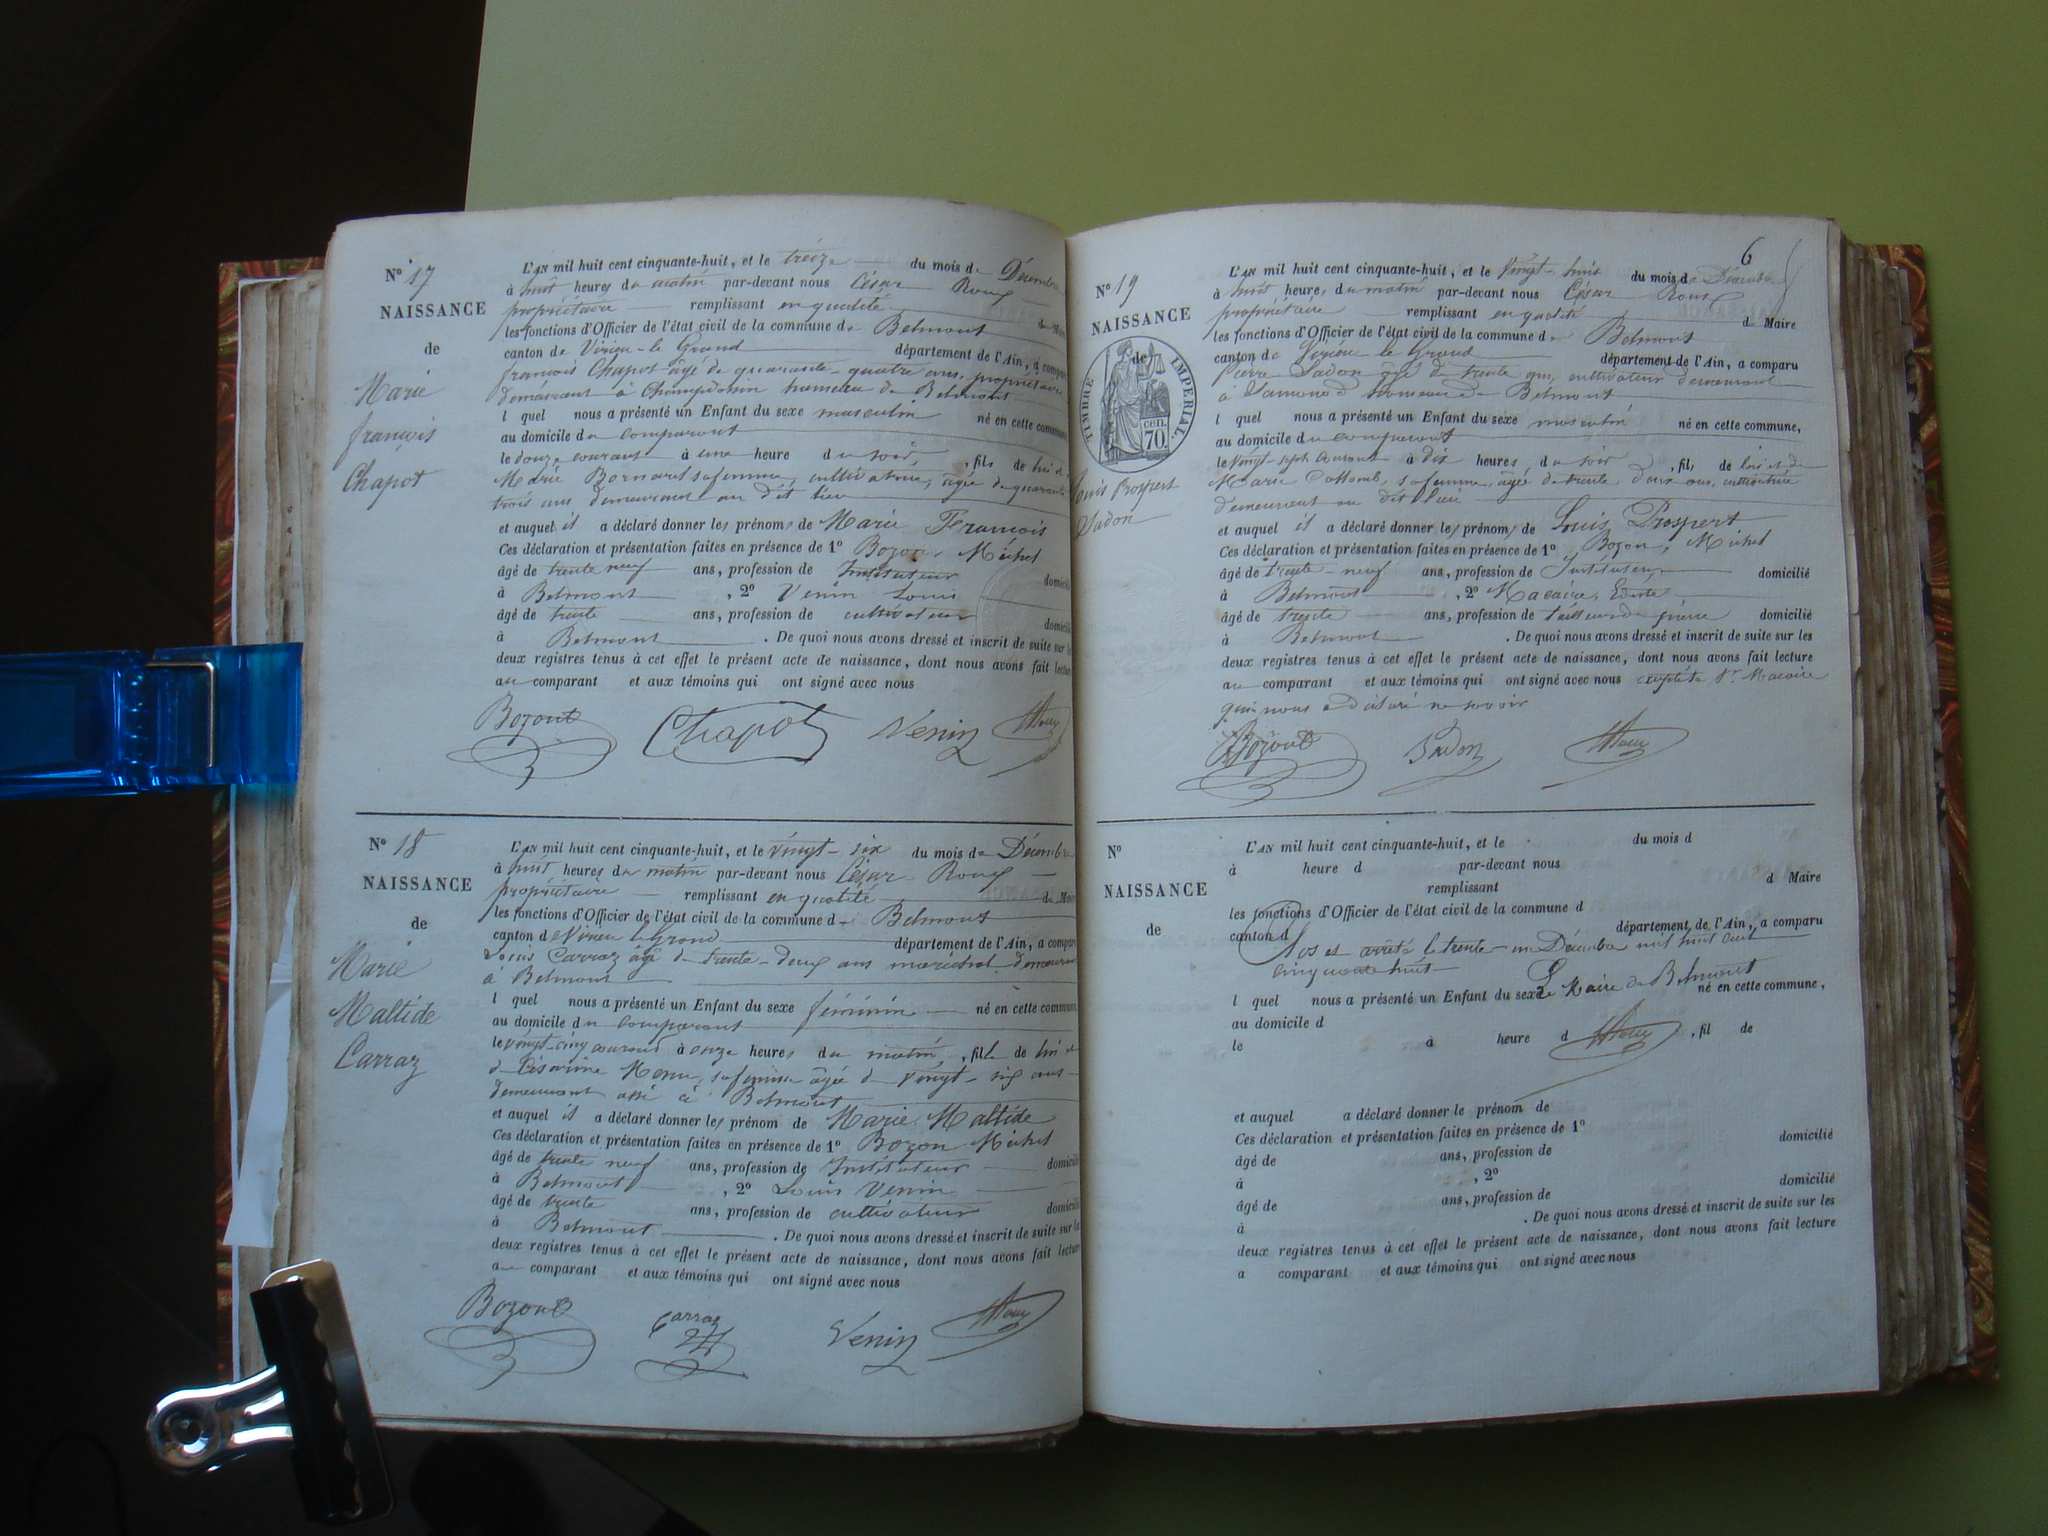 N° 17
NAISSANCE
de
Marie
françois
Chapot
L'AN mil huit cent cinquante-huit, et le treize du mois de Décembre
à huit heures du matin par-devant nous César Roux
propriétaire remplissant en qualité de Maire
les fonctions d'Officier de l'état civil de la commune de Belmont
canton de Virieu-le Grand département de l'Ain, a comparu
françois Chapot âgé de quarante-quatre ans, propriétaire
demeurant à Champdossin hameau de Belmont
l quel nous a présenté un Enfant du sexe masculin né en cette commune
au domicile du comparant
le douze courant à une heure du soir, fils de lui et
Marie Bornard sa femme, cultivatrice, âgée de quarante
trois ans demeurant au dit lieu
et auquel il a déclaré donner les prénoms de Marie François
Ces déclaration et présentation faites en présence de 1° Bozon, Michel
âgé de trente neuf ans, profession de Instituteur domicilié
à Belmont, 2° Venin Louis
âgé de trente ans, profession de cultivateur domicilié
à Belmont. De quoi nous avons dressé et inscrit de suite sur les
deux registres tenus à cet effet le présent acte de naissance, dont nous avons fait lecture
au comparant et aux témoins qui ont signé avec nous
Bozont Chapot Venin Roux
N° 18
NAISSANCE
de
Marie
Maltide
Carraz
L'AN mil huit cent cinquante-huit, et le vingt-six du mois de Décembre
à huit heures du matin par-devant nous César Roux
propriétaire remplissant en qualité de Maire
les fonctions d'Officier de l'état civil de la commune de Belmont
canton de Virieu le Grand département de l'Ain, a comparu
Louis Carraz âgé de trente-deux ans maréchal demeurant
à Belmont
l quel nous a présenté un Enfant du sexe féminin né en cette commune,
au domicile du comparant
le vingt-cinq courant à onze heures du matin, fille de lui et
de Césarine sa femme âgée de vingt-six ans
demeurant à Belmont
et auquel il a déclaré donner les prénom de Marie Maltide
Ces déclaration et présentation faites en présence de 1° Bozon Michel
âgé de trente neuf ans, profession de Instituteur domicilié
à Belmont, 2° Louis Venin
âgé de trente ans, profession de cultivateur domicilié
à Belmont. De quoi nous avons dressé et inscrit de suite sur les
deux registres tenus à cet effet le présent acte de naissance, dont nous avons fait lecture
au comparant et aux témoins qui ont signé avec nous
Bozont Carraz Venin Roux
6
N° 19
NAISSANCE
de
TIMBRE IMPERIAL.
cen.
70.
Louis Prospert
Sadon
L'AN mil huit cent cinquante-huit, et le vingt-huit du mois de Décembre
à huit heures du matin par-devant nous César Roux
propriétaire remplissant en qualité d Maire
les fonctions d'Officier de l'état civil de la commune de Belmont
canton de Virieu le Grand département de l'Ain, a comparu
Pierre Sadon âgé de trente ans, cultivateur demeurant
à hameau de Belmont
l quel nous a présenté un Enfant du sexe masculin né en cette commune,
au domicile du comparant
le vingt-sept courant à dix heures du soir, fils de lui et de
Marie sa femme, âgée de trente deux ans, cultivatrice
demeurant au dit lieu
et auquel il a déclaré donner les prénoms de Louis Prospert
Ces déclaration et présentation faites en présence de 1° Bozon, Michel
âgé de trente-neuf ans, profession de Instituteur domicilié
à Belmont, 2° Macaire,
âgé de trente ans, profession de tailleur de pierre domicilié
à Belmont. De quoi nous avons dressé et inscrit de suite sur les
deux registres tenus à cet effet le présent acte de naissance, dont nous avons fait lecture
au comparant et aux témoins qui ont signé avec nous excepté le Sr Macaire
qui nous a déclaré ne savoir
Bozont Sadon Roux
N°
NAISSANCE
de
L'AN mil huit cent cinquante-huit, et le du mois d
à heure d par-devant nous
remplissant d Maire
les fonctions d'Officier de l'état civil de la commune d
canton d département de l'Ain, a comparu
Clos et arrêté le trente-un Décembre mil huit cent
cinquante huit
l quel nous a présenté un Enfant du sexe né en cette commune,
Le Maire de Belmont
au domicile d
le à heure d , fil de
Roux
et auquel a déclaré donner le prénom de
Ces déclaration et présentation faites en présence de 1°
âgé de ans, profession de domicilié
à , 2°
âgé de ans, profession de domicilié
à . De quoi nous avons dressé et inscrit de suite sur les
deux registres tenus à cet effet le présent acte de naissance, dont nous avons fait lecture
a comparant et aux témoins qui ont signé avec nous